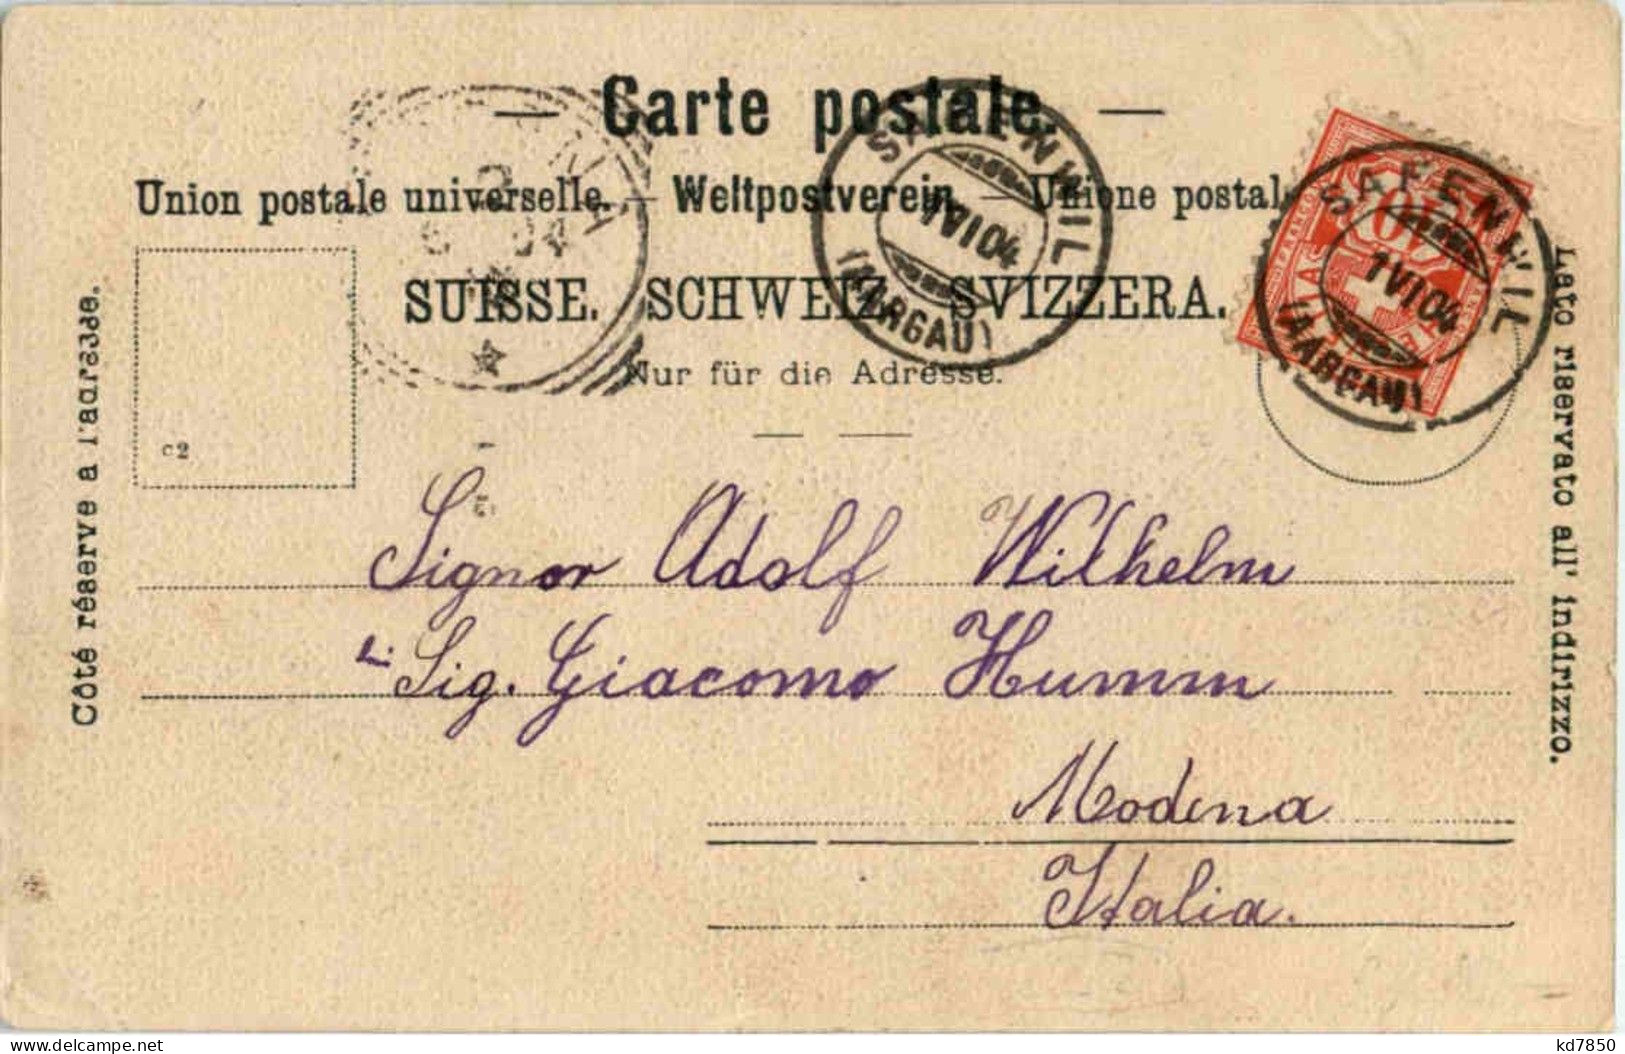 Carte postale.
Union postale universelle. — Weltpostverein. — Unione postale
SUISSE. SCHWEIZ. SVIZZERA.
Nur für die Adresse.
Côté réservé à l'adresse.
Lato riservato all' indirizzo.
c2
SAFENWIL
1 VI 04
(AARGAU)
SAFENWIL
1 VI 04
(AARGAU)
Signor Adolf Wilhelm
bei Sig. Giacomo Humm
Modena
Italia.
kd7850